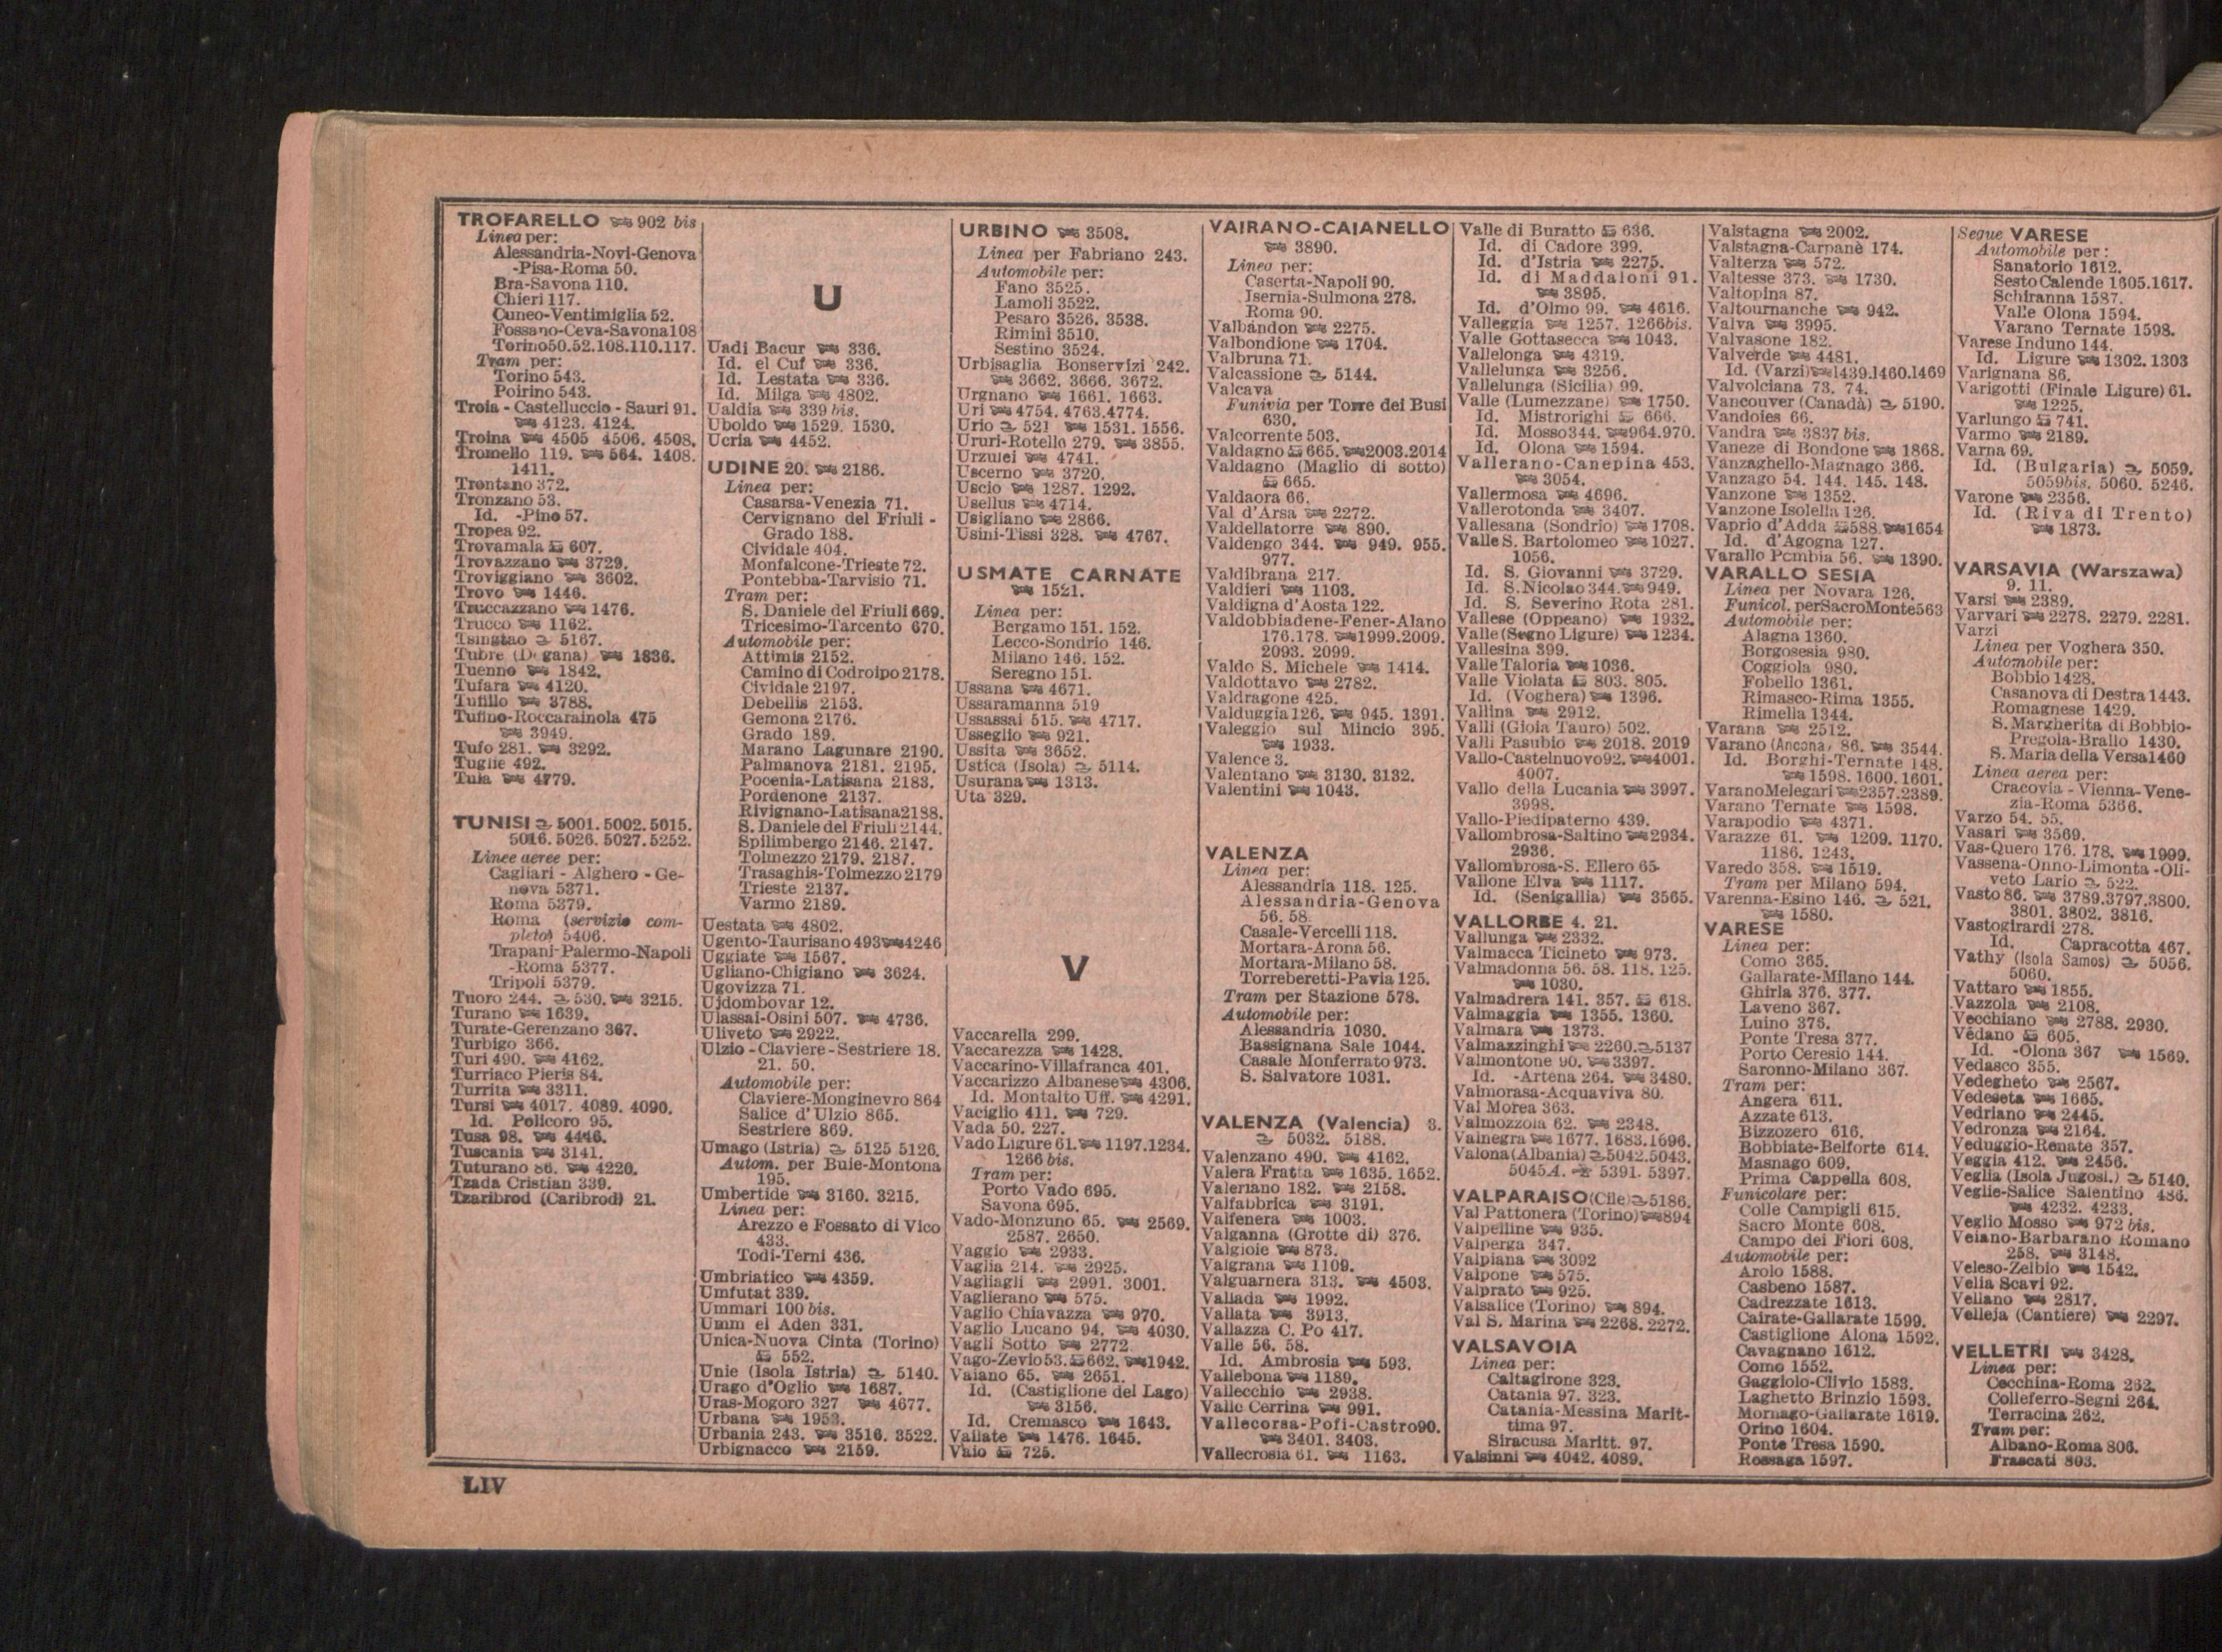 TROFARELLO 902 bis
Linea per:
Alessandria-Novi-Genova
-Pisa-Roma 50.
Bra-Savona 110.
Chieri 117.
Cuneo-Ventimiglia 52.
Fossano-Ceva-Savona 108
Torino 50. 52. 108. 110. 117.
Tram per:
Torino 543.
Poirino 543.
Troia - Castelluccio - Sauri 91.
4123. 4124.
Troina 4505 4506. 4508.
Tromello 119. 564. 1408.
1411.
Trontano 372.
Tronzano 53.
Id. -Pino 57.
Tropea 92.
Trovamala 607.
Trovazzano 3729.
Troviggiano 3602.
Trovo 1446.
Truccazzano 1476.
Trucco 1162.
Tsingtao 5167.
Tubre (Degana) 1836.
Tuenno 1842.
Tufara 4120.
Tufillo 3788.
Tufino-Roccarainola 475
3949.
Tufo 281. 3292.
Tuglie 492.
Tula 4779.
TUNISI 5001. 5002. 5015.
5016. 5026. 5027. 5252.
Linee aeree per:
Cagliari - Alghero - Ge-
nova 5371.
Roma 5379.
Roma (servizio com-
pleto) 5406.
Trapani-Palermo-Napoli
-Roma 5377.
Tripoli 5379.
Tuoro 244. 530. 3215.
Turano 1639.
Turate-Gerenzano 367.
Turbigo 366.
Turi 490. 4162.
Turriaco Pieris 84.
Turrita 3311.
Tursi 4017. 4089. 4090.
Id. Policoro 95.
Tusa 98. 4446.
Tuscania 3141.
Tuturano 86. 4220.
Tzada Cristian 339.
Tzaribrod (Caribrod) 21.
U
Uadi Bacur 336.
Id. el Cuf 336.
Id. Lestata 336.
Id. Milga 4802.
Ualdia 339 bis.
Uboldo 1529. 1530.
Ucria 4452.
UDINE 20. 2186.
Linea per:
Casarsa-Venezia 71.
Cervignano del Friuli -
Grado 188.
Cividale 404.
Monfalcone-Trieste 72.
Pontebba-Tarvisio 71.
Tram per:
S. Daniele del Friuli 669.
Tricesimo-Tarcento 670.
Automobile per:
Attimis 2152.
Camino di Codroipo 2178.
Cividale 2197.
Debellis 2153.
Gemona 2176.
Grado 189.
Marano Lagunare 2190.
Palmanova 2181. 2195.
Pocenia-Latisana 2183.
Pordenone 2137.
Rivignano-Latisana 2188.
S. Daniele del Friuli 2144.
Spilimbergo 2146. 2147.
Tolmezzo 2179. 2187.
Trasaghis-Tolmezzo 2179
Trieste 2137.
Varmo 2189.
Uestata 4802.
Ugento-Taurisano 493 4246
Uggiate 1567.
Ugliano-Chigiano 3624.
Ugovizza 71.
Ujdombovar 12.
Ulassai-Osini 507. 4736.
Uliveto 2922.
Ulzio - Claviere - Sestriere 18.
21. 50.
Automobile per:
Claviere-Monginevro 864
Salice d'Ulzio 865.
Sestriere 869.
Umago (Istria) 5125 5126.
Autom. per Buie-Montona
195.
Umbertide 3160. 3215.
Linea per:
Arezzo e Fossato di Vico
433.
Todi-Terni 436.
Umbriatico 4359.
Umfutat 339.
Ummari 100 bis.
Umm el Aden 331.
Unica-Nuova Cinta (Torino)
552.
Unie (Isola Istria) 5140.
Urago d'Oglio 1687.
Uras-Mogoro 327 4677.
Urbana 1953.
Urbania 243. 3516. 3522.
Urbignacco 2159.
URBINO 3508.
Linea per Fabriano 243.
Automobile per:
Fano 3525.
Lamoli 3522.
Pesaro 3526. 3538.
Rimini 3510.
Sestino 3524.
Urbisaglia Bonservizi 242.
3662. 3666. 3672.
Urgnano 1661. 1663.
Uri 4754. 4763. 4774.
Urio 521 1531. 1556.
Ururi-Rotello 279. 3855.
Urzulei 4741.
Uscerno 3720.
Uscio 1287. 1292.
Usellus 4714.
Usigliano 2866.
Usini-Tissi 328. 4767.
USMATE CARNATE
1521.
Linea per:
Bergamo 151. 152.
Lecco-Sondrio 146.
Milano 146. 152.
Seregno 151.
Ussana 4671.
Ussaramanna 519
Ussassai 515. 4717.
Usseglio 921.
Ussita 3652.
Ustica (Isola) 5114.
Usurana 1313.
Uta 329.
V
Vaccarella 299.
Vaccarezza 1428.
Vaccarino-Villafranca 401.
Vaccarizzo Albanese 4306.
Id. Montalto Uff. 4291.
Vaciglio 411. 729.
Vada 50. 227.
Vado Ligure 61. 1197. 1234.
1266 bis.
Tram per:
Porto Vado 695.
Savona 695.
Vado-Monzuno 65. 2569.
2587. 2650.
Vaggio 2933.
Vaglia 214. 2925.
Vagliagli 2991. 3001.
Vaglierano 575.
Vaglio Chiavazza 970.
Vaglio Lucano 94. 4030.
Vagli Sotto 2772
Vago-Zevio 53. 662. 1942.
Vaiano 65. 2651.
Id. (Castiglione del Lago)
3156.
Id. Cremasco 1643.
Vailate 1476. 1645.
Vaio 725.
VAIRANO-CAIANELLO
3890.
Linea per:
Caserta-Napoli 90.
Isernia-Sulmona 278.
Roma 90.
Valbandon 2275.
Valbondione 1704.
Valbruna 71.
Valcassione 5144.
Valcava
Funivia per Torre dei Busi
630.
Valcorrente 503.
Valdagno 665. 2003. 2014
Valdagno (Maglio di sotto)
665.
Valdaora 66.
Val d'Arsa 2272.
Valdellatorre 890.
Valdengo 344. 949. 955.
977.
Valdibrana 217.
Valdieri 1103.
Valdigna d'Aosta 122.
Valdobbiadene-Fener-Alano
176. 178. 1999. 2009.
2093. 2099.
Valdo S. Michele 1414.
Valdottavo 2782.
Valdragone 425.
Valduggia 126. 945. 1391.
Valeggio sul Mincio 395.
1933.
Valence 3.
Valentano 3130. 3132.
Valentini 1043.
VALENZA
Linea per:
Alessandria 118. 125.
Alessandria-Genova
56. 58
Casale-Vercelli 118.
Mortara-Arona 56.
Mortara-Milano 58.
Torreberetti-Pavia 125.
Tram per Stazione 578.
Automobile per:
Alessandria 1030.
Bassignana Sale 1044.
Casale Monferrato 973.
S. Salvatore 1031.
VALENZA (Valencia) 3.
5032. 5188.
Valenzano 490. 4162.
Valera Fratta 1635. 1652.
Valeriano 182. 2158.
Valfabbrica 3191.
Valfenera 1003.
Valganna (Grotte di) 376.
Valgioie 873.
Valgrana 1109.
Valguarnera 313. 4503.
Vallada 1992.
Vallata 3913.
Vallazza C. Po 417.
Valle 56. 58.
Id. Ambrosia 593.
Vallebona 1189.
Vallecchio 2938.
Valle Cerrina 991.
Vallecorsa-Pofi-Castro 90.
3401. 3403.
Vallecrosia 61. 1163.
Valle di Buratto 636.
Id. di Cadore 399.
Id. d'Istria 2275.
Id. di Maddaloni 91.
3895.
Id. d'Olmo 99. 4616.
Valleggia 1257. 1266bis.
Valle Gottasecca 1043.
Vallelonga 4319.
Vallelunga 3256.
Vallelunga (Sicilia) 99.
Valle (Lumezzane) 1750.
Id. Mistrorighi 666.
Id. Mosso 344. 964. 970.
Id. Olona 1594.
Vallerano-Canepina 453.
3054.
Vallermosa 4696.
Vallerotonda 3407.
Vallesana (Sondrio) 1708.
Valle S. Bartolomeo 1027.
1056.
Id. S. Giovanni 3729.
Id. S. Nicolao 344. 949.
Id. S. Severino Rota 281.
Vallese (Oppeano) 1932.
Valle (Segno Ligure) 1234.
Vallesina 399.
Valle Taloria 1036.
Valle Violata 803. 805.
Id. (Voghera) 1396.
Vallina 2912.
Valli (Gioia Tauro) 502.
Valli Pasubio 2018. 2019
Vallo-Castelnuovo 92. 4001.
4007.
Vallo della Lucania 3997.
3998.
Vallo-Piedipaterno 439.
Vallombrosa-Saltino 2934.
2936.
Vallombrosa-S. Ellero 65.
Vallone Elva 1117.
Id. (Senigallia) 3565.
VALLORBE 4. 21.
Vallunga 2332.
Valmacca Ticineto 973.
Valmadonna 56. 58. 118. 125.
1030.
Valmadrera 141. 357. 618.
Valmaggia 1355. 1360.
Valmara 1373.
Valmazzinghi 2260. 5137
Valmontone 90. 3397.
Id. -Artena 264. 3480.
Valmorasa-Acquaviva 80.
Val Morea 363.
Valmozzola 62. 2348.
Valnegra 1677. 1683. 1696.
Valona (Albania) 5042. 5043.
5045A. 5391. 5397.
VALPARAISO (Cile) 5186.
Val Pattonera (Torino) 894
Valpelline 935.
Valperga 347.
Valpiana 3092
Valpone 575.
Valprato 925.
Valsalice (Torino) 894.
Val S. Marina 2268. 2272.
VALSAVOIA
Linea per:
Caltagirone 323.
Catania 97. 323.
Catania-Messina Marit-
tima 97.
Siracusa Maritt. 97.
Valsinni 4042. 4089.
Valstagna 2002.
Valstagna-Carpanè 174.
Valterza 572.
Valtesse 373. 1730.
Valtopina 87.
Valtournanche 942.
Valva 3995.
Valvasone 182.
Valverde 4481.
Id. (Varzi) 1439. 1460. 1469
Valvolciana 73. 74.
Vancouver (Canadà) 5190.
Vandoies 66.
Vandra 3837 bis.
Vaneze di Bondone 1868.
Vanzaghello-Magnago 366.
Vanzago 54. 144. 145. 148.
Vanzone 1352.
Vanzone Isolella 126.
Vaprio d'Adda 588. 1654
Id. d'Agogna 127.
Varallo Pombia 56. 1390.
VARALLO SESIA
Linea per Novara 126.
Funicol. per Sacro Monte 563
Automobile per:
Alagna 1360.
Borgosesia 980.
Coggiola 980.
Fobello 1361.
Rimasco-Rima 1355.
Rimella 1344.
Varana 2512.
Varano (Ancona) 86. 3544.
Id. Borghi-Ternate 148.
1598. 1600. 1601.
Varano Melegari 2357. 2389.
Varano Ternate 1598.
Varapodio 4371.
Varazze 61. 1209. 1170.
1186. 1243.
Varedo 358. 1519.
Tram per Milano 594.
Varenna-Esino 146. 521.
1580.
VARESE
Linea per:
Como 365.
Gallarate-Milano 144.
Ghirla 376. 377.
Laveno 367.
Luino 376.
Ponte Tresa 377.
Porto Ceresio 144.
Saronno-Milano 367.
Tram per:
Angera 611.
Azzate 613.
Bizzozero 616.
Bobbiate-Belforte 614.
Masnago 609.
Prima Cappella 608.
Funicolare per:
Colle Campigli 615.
Sacro Monte 608.
Campo dei Fiori 608.
Automobile per:
Arolo 1588.
Casbeno 1587.
Cadrezzate 1613.
Cairate-Gallarate 1599.
Castiglione Alona 1592.
Cavagnano 1612.
Como 1552.
Gaggiolo-Clivio 1583.
Laghetto Brinzio 1593.
Mornago-Gallarate 1619.
Orino 1604.
Ponte Tresa 1590.
Rossaga 1597.
Segue VARESE
Automobile per:
Sanatorio 1612.
Sesto Calende 1605. 1617.
Schiranna 1587.
Valle Olona 1594.
Varano Ternate 1598.
Varese Induno 144.
Id. Ligure 1302. 1303
Varignana 86.
Varigotti (Finale Ligure) 61.
1225.
Varlungo 741.
Varmo 2189.
Varna 69.
Id. (Bulgaria) 5059.
5059bis. 5060. 5246.
Varone 2356.
Id. (Riva di Trento)
1873.
VARSAVIA (Warszawa)
9. 11.
Varsi 2389.
Varvari 2278. 2279. 2281.
Varzi
Linea per Voghera 350.
Automobile per:
Bobbio 1428.
Casanova di Destra 1443.
Romagnese 1429.
S. Margherita di Bobbio-
Pregola-Brallo 1430.
S. Maria della Versa 1460
Linea aerea per:
Cracovia - Vienna-Vene-
zia-Roma 5366.
Varzo 54. 55.
Vasari 3569.
Vas-Quero 176. 178. 1999.
Vassena-Onno-Limonta-Oli-
veto Lario 522.
Vasto 86. 3789. 3797. 3800.
3801. 3802. 3816.
Vastogirardi 278.
Id. Capracotta 467.
Vathy (Isola Samos) 5056.
5060.
Vattaro 1855.
Vazzola 2108.
Vecchiano 2788. 2930.
Vêdano 605.
Id. -Olona 367 1569.
Vedasco 355.
Vedegheto 2567.
Vedeseta 1665.
Vedriano 2445.
Vedronza 2164.
Veduggio-Renate 357.
Veggia 412. 2456.
Veglia (Isola Jugosl.) 5140.
Veglie-Salice Salentino 486.
4232. 4233.
Veglio Mosso 972 bis.
Veiano-Barbarano Romano
258. 3148.
Veleso-Zelbio 1542.
Velia Scavi 92.
Veliano 2817.
Velleja (Cantiere) 2297.
VELLETRI 3428.
Linea per:
Cecchina-Roma 262.
Colleferro-Segni 264.
Terracina 262.
Tram per:
Albano-Roma 806.
Frascati 803.
LIV